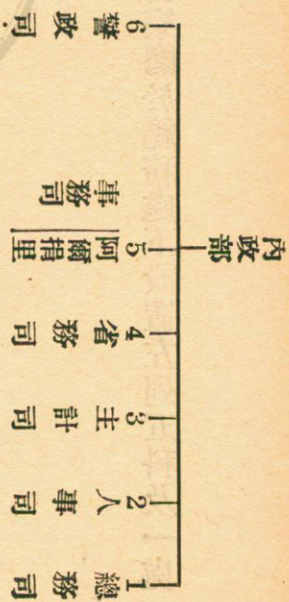 內政部
1 總務司
2 人事司
3 主計司
4 省務司
5 阿爾捐里
事務司
6 警政司